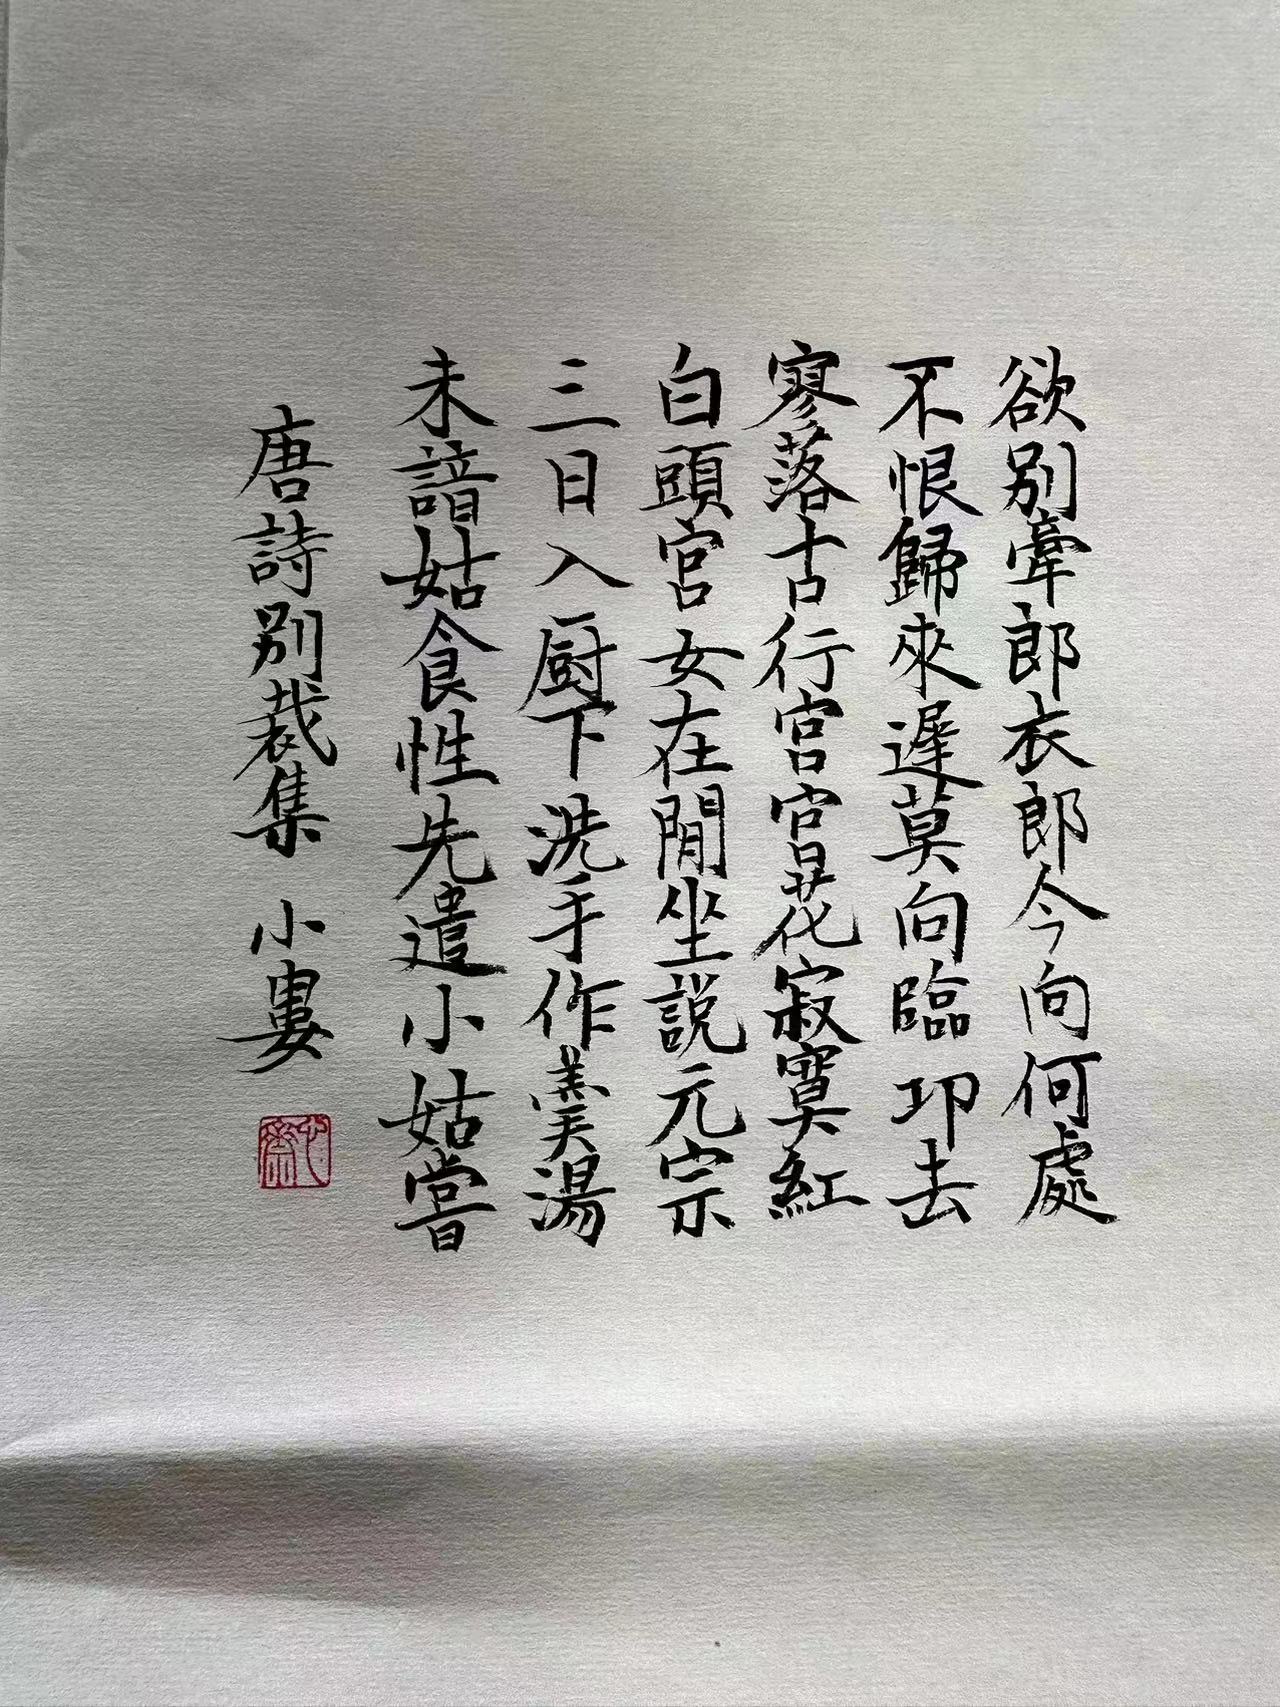 欲別牽郎衣郎今向何處
不恨歸來遲莫向臨邛去
寥落古行宮宮花寂寞紅
白頭宮女在閒坐説元宗
三日入厨下洗手作羹湯
未諳姑食性先遣小姑嘗
唐詩別裁集 小婁